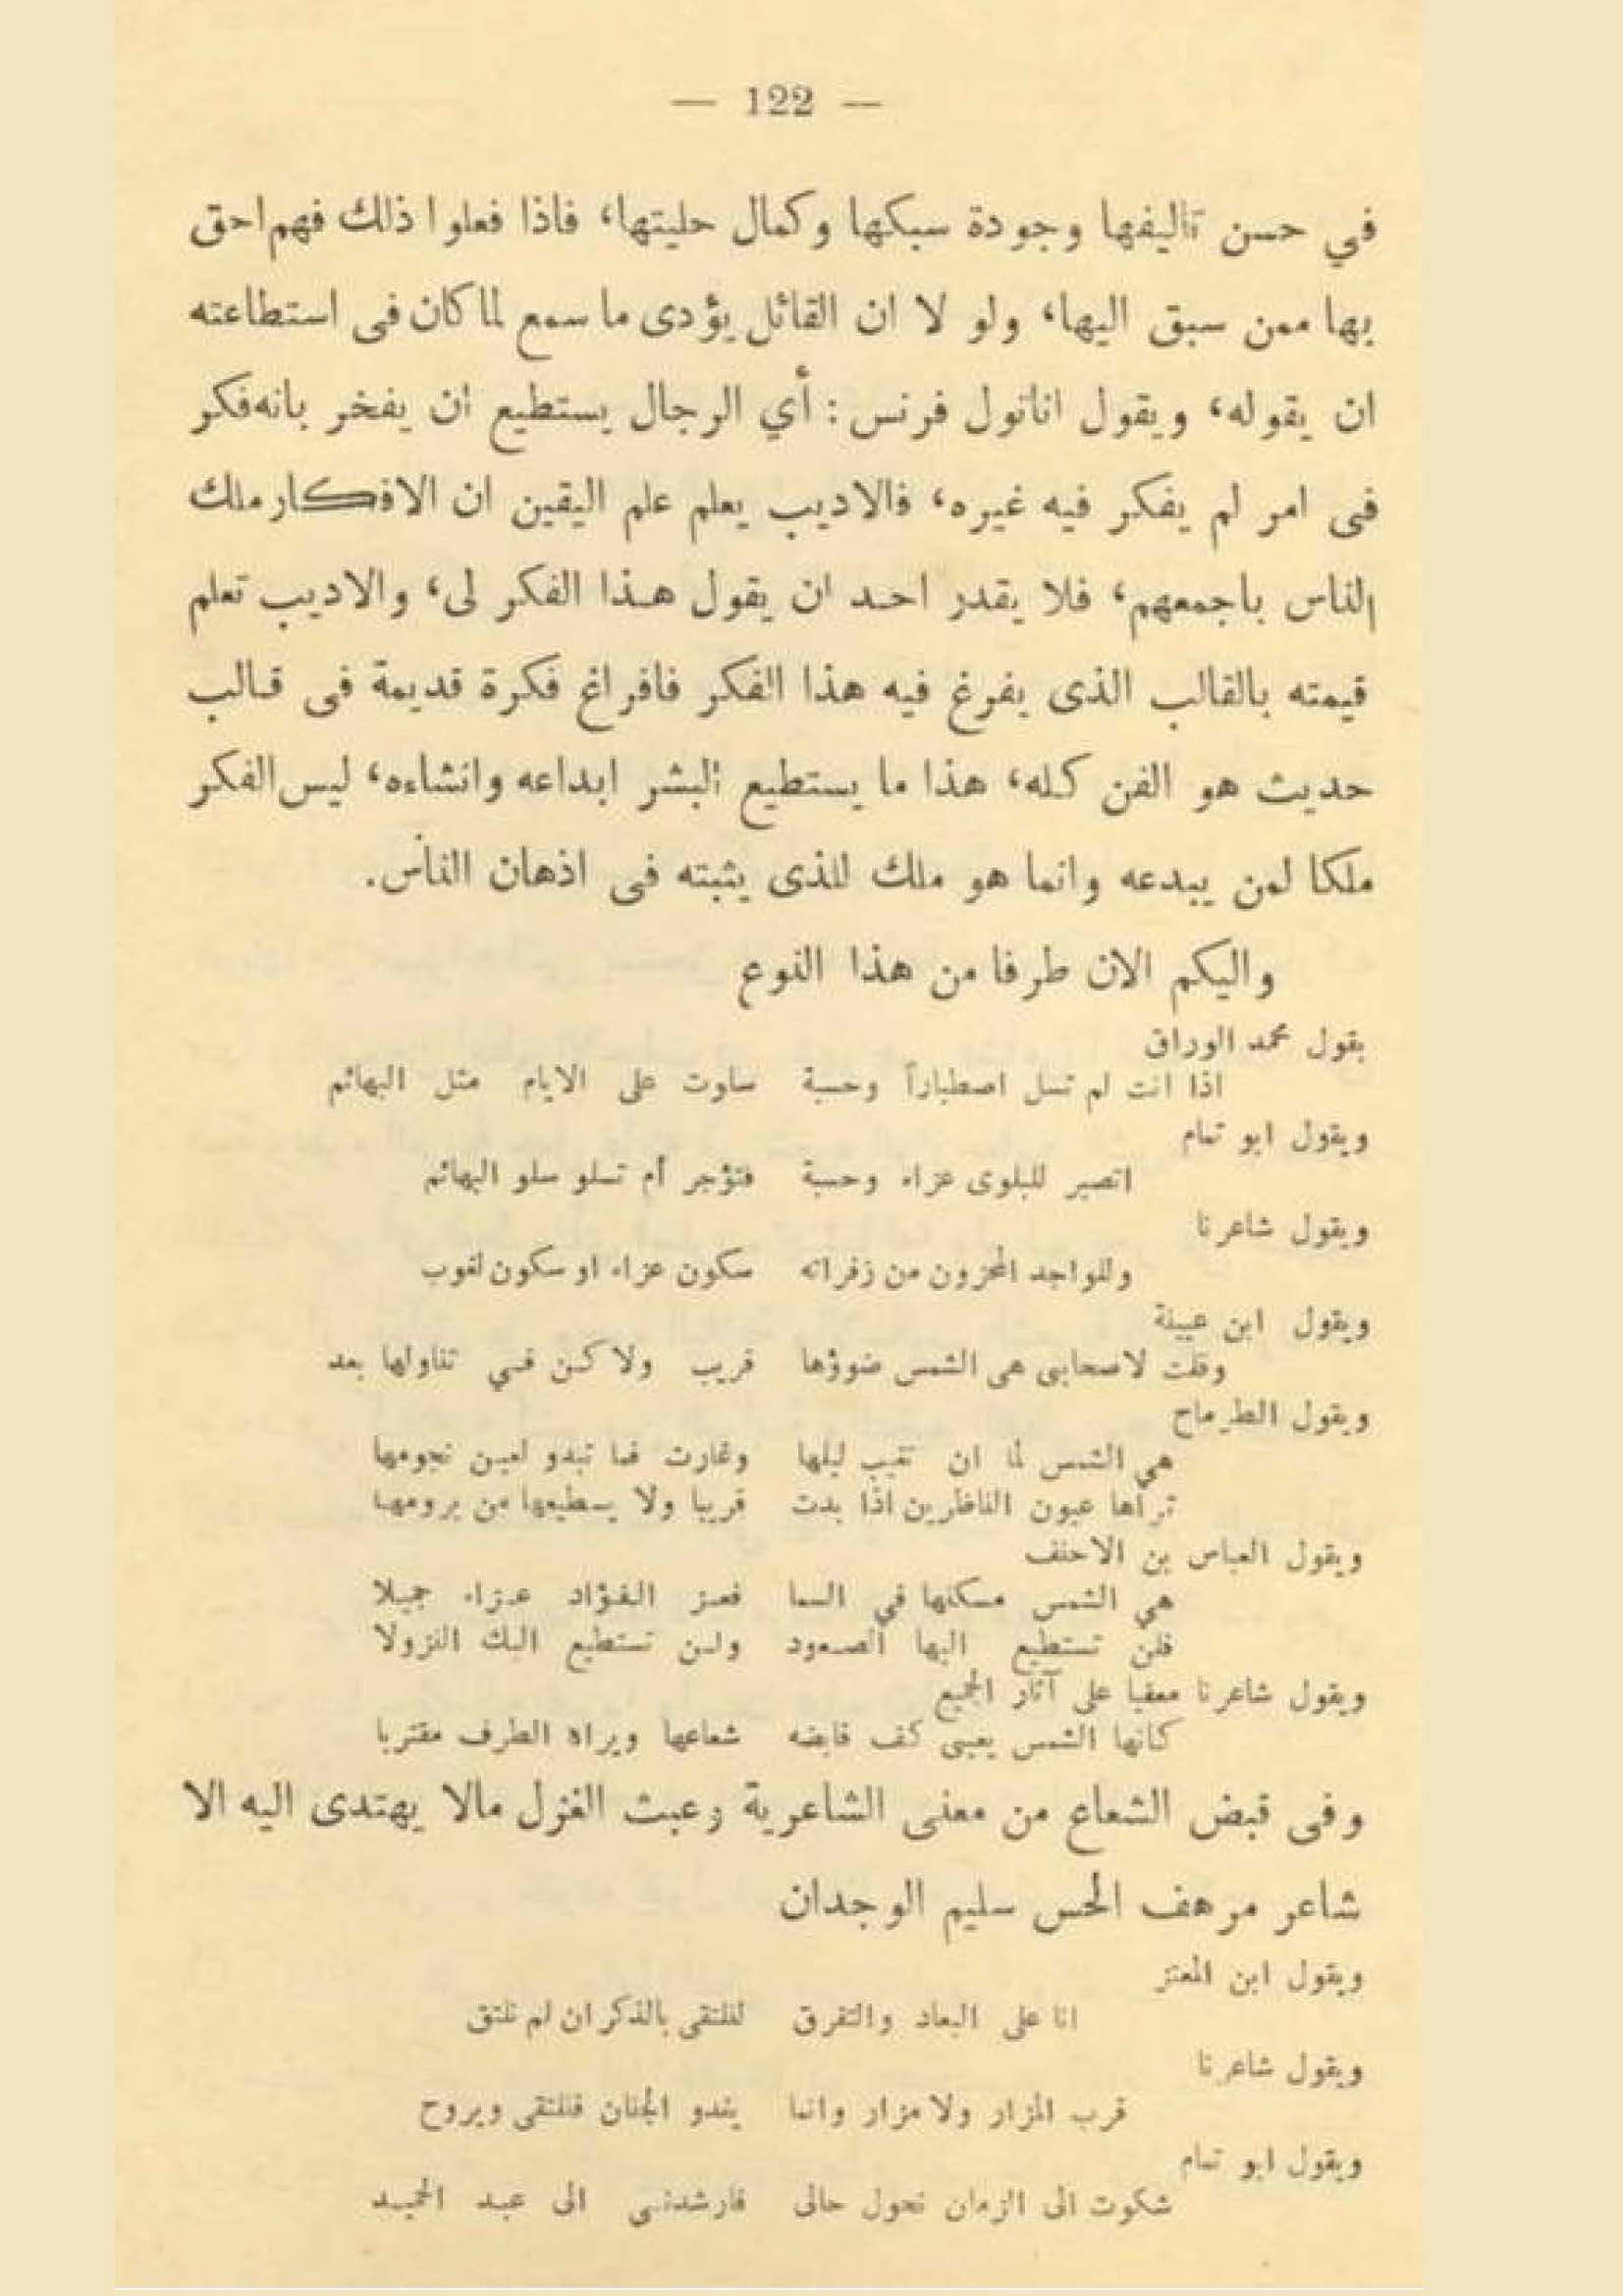 — 122 —
في حسن تاليفها وجودة سبكها وكمال حليتها، فاذا فعلوا ذلك فهم احق
بها ممن سبق اليها، ولو لا ان القائل يؤدى ما سمع لما كان فى استطاعته
ان يقوله، ويقول اناتول فرنس : أي الرجال يستطيع ان يفخر بانه فكر
فى امر لم يفكر فيه غيره، فالاديب يعلم علم اليقين ان الافكار ملك
الناس باجمعهم، فلا يقدر احد ان يقول هذا الفكر لى، والاديب تعلم
قيمته بالقالب الذى يفرغ فيه هذا الفكر فافراغ فكرة قديمة فى قالب
حديث هو الفن كله، هذا ما يستطيع البشر ابداعه وانشاءه، ليس الفكر
ملكا لمن يبدعه وانما هو ملك للذى يثبته فى اذهان الناس.
واليكم الان طرفا من هذا النوع
يقول محمد الوراق
اذا انت لم تسل اصطباراً وحسبة ساوت على الايام مثل البهائم
ويقول ابو تمام
اتصبر للبلوى عزاء وحسبة فتؤجر أم تسلو سلو البهائم
ويقول شاعرنا
وللواجد المحزون من زفراته سكون عزاء او سكون لغوب
ويقول ابن عيينة
وقلت لاصحابى هى الشمس ضوؤها قريب ولاكن في تناولها بعد
ويقول الطرماح
هي الشمس لما ان تغيب ليلها وغارت فما تبدو لعين نجومها
تراها عيون الناظرين اذا بدت قريبا ولا يسطيعها من يرومها
ويقول العباس بن الاحنف
هي الشمس مسكنها في السما فعز الفؤاد عزاء جميلا
فلن تستطيع اليها الصعود ولن تستطيع اليك النزولا
ويقول شاعرنا معقبا على آثار الجميع
كانها الشمس يعيى كف قابضه شعاعها ويراه الطرف مقتربا
وفى قبض الشعاع من معنى الشاعرية وعبث الغزل مالا يهتدى اليه الا
شاعر مرهف الحس سليم الوجدان
ويقول ابن المعتز
انا على البعاد والتفرق لنلتقى بالذكر ان لم نلتق
ويقول شاعرنا
قرب المزار ولا مزار وانما يغدو الجنان فنلتقى ويروح
ويقول ابو تمام
شكوت الى الزمان نحول حالى فارشدنى الى عبد الحميد